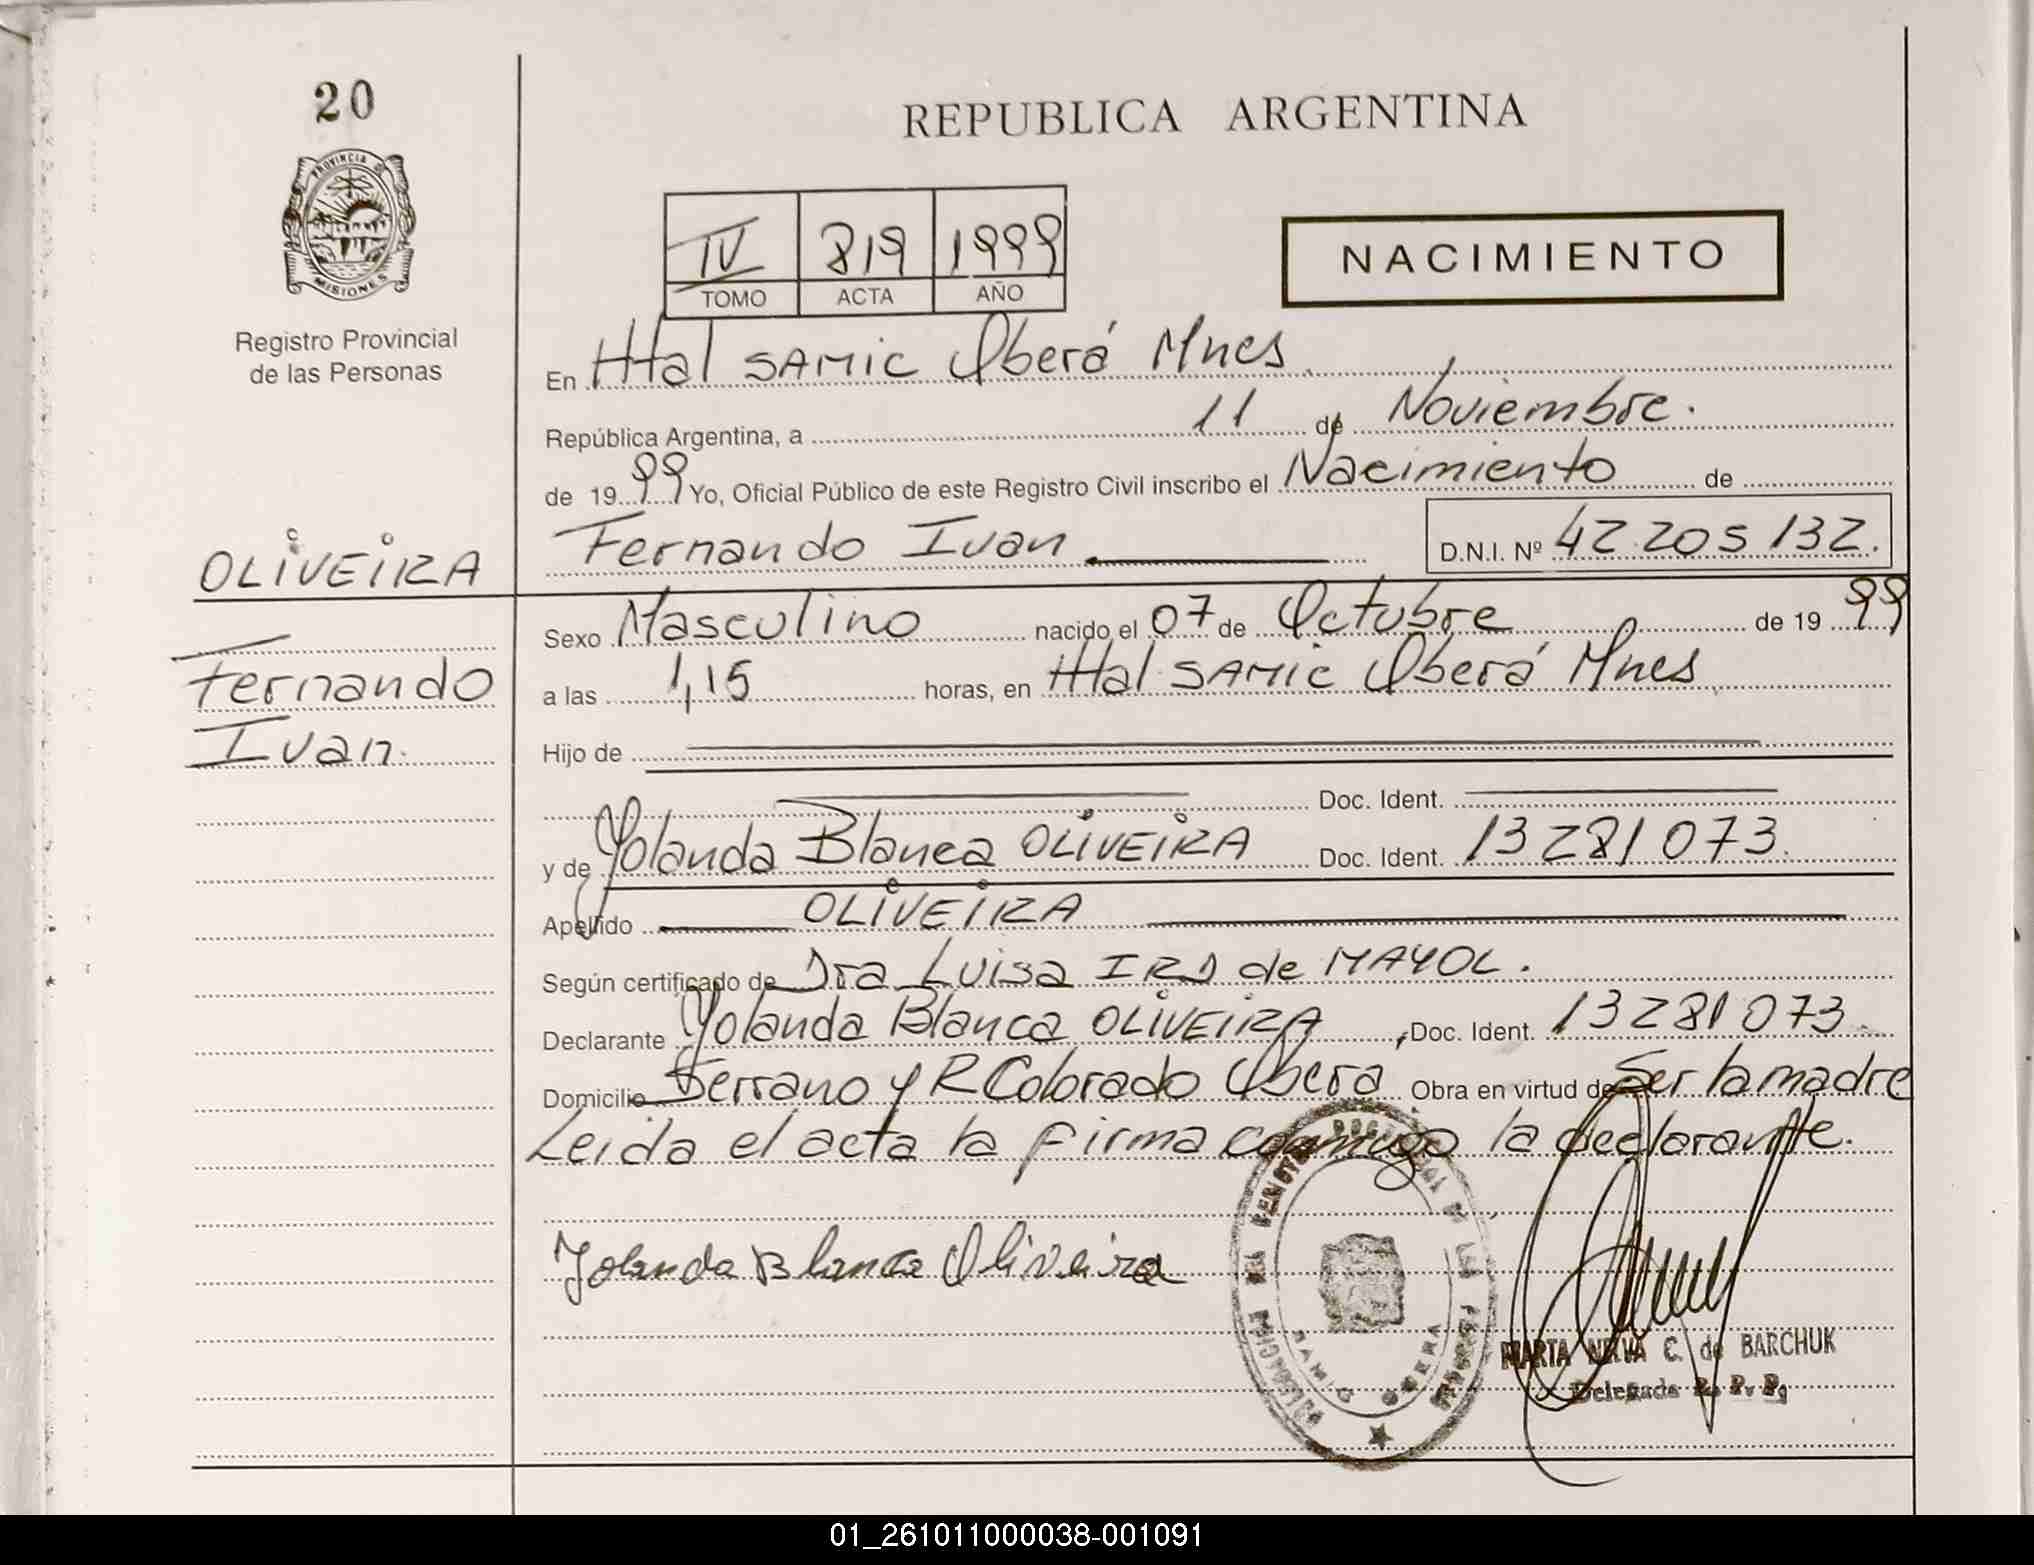 20
PROVINCIA DE
MISIONES
Registro Provincial
de las Personas
OLIVEIRA
Fernando
Ivan.
REPUBLICA ARGENTINA
IV 819 1999
TOMO ACTA AÑO
NACIMIENTO
En Htal SAMIC Oberá Mnes
República Argentina, a 11 de Noviembre.
de 1999 Yo, Oficial Público de este Registro Civil inscribo el Nacimiento de
Fernando Ivan D.N.I. Nº 42 205 132.
Sexo Masculino nacido el 07 de Octubre de 1999
a las 1,15 horas, en Htal SAMIC Oberá Mnes
Hijo de
Doc. Ident.
y de Yolanda Blanca OLIVEIRA Doc. Ident. 13 281 073.
Apellido OLIVEIRA
Según certificado de Dra Luisa IRD de MAYOL.
Declarante Yolanda Blanca OLIVEIRA, Doc. Ident. 13 281 073.
Domicilio Serrano y R Colorado Obera Obra en virtud de Ser la madre
Leida el acta la firma conmigo la declarante.
Yolanda Blanca Oliveira
SAMIC OBERA
MARTA NELVA C. de BARCHUK
Delegada R. P. P.
01_261011000038-001091